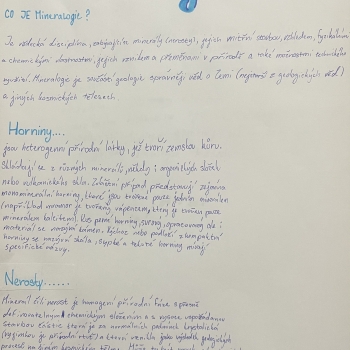 CO JE Mineralogie?
Je vědecká disciplína, zabývající se minerály (nerosty), jejich vnitřní stavbou, vzhledem, fyzikálními
a chemickými vlastnostmi, jejich vznikem a přeměnami v přírodě a také možnostmi technického
využití. Mineralogie je součástí geologie správněji věd o Zemi (nejstarší z geologických věd)
a jiných kosmických tělesech.
Horniny....
jsou heterogenní přírodní látky, jež tvoří zemskou kůru.
Skládají se z různých minerálů, někdy i organických složek
nebo vulkanického skla. Zvláštní případ představují zejména
monominerální horniny, které jsou tvořeny pouze jedním minerálem
(například mramor je tvořený vápencem, který je tvořen pouze
minerálem kalcitem). Kus pevné horniny, surový, opracovaný ale i
materiál se vnímá kámen. Kýžíme nebo podloží z kompaktní
horniny se nazývá skála, sypké a tekuté horniny mívají
specifické názvy.
Nerosty......
Minerál čili nerost je homogenní přírodní fáze s přesně
definovatelným chemickým složením a s vysoce uspořádanou
stavbou částic která je za normálních podmínek krystalická
(výjimkou je přírodní rtuť) a která vznikla jako výsledek geologických
procesů